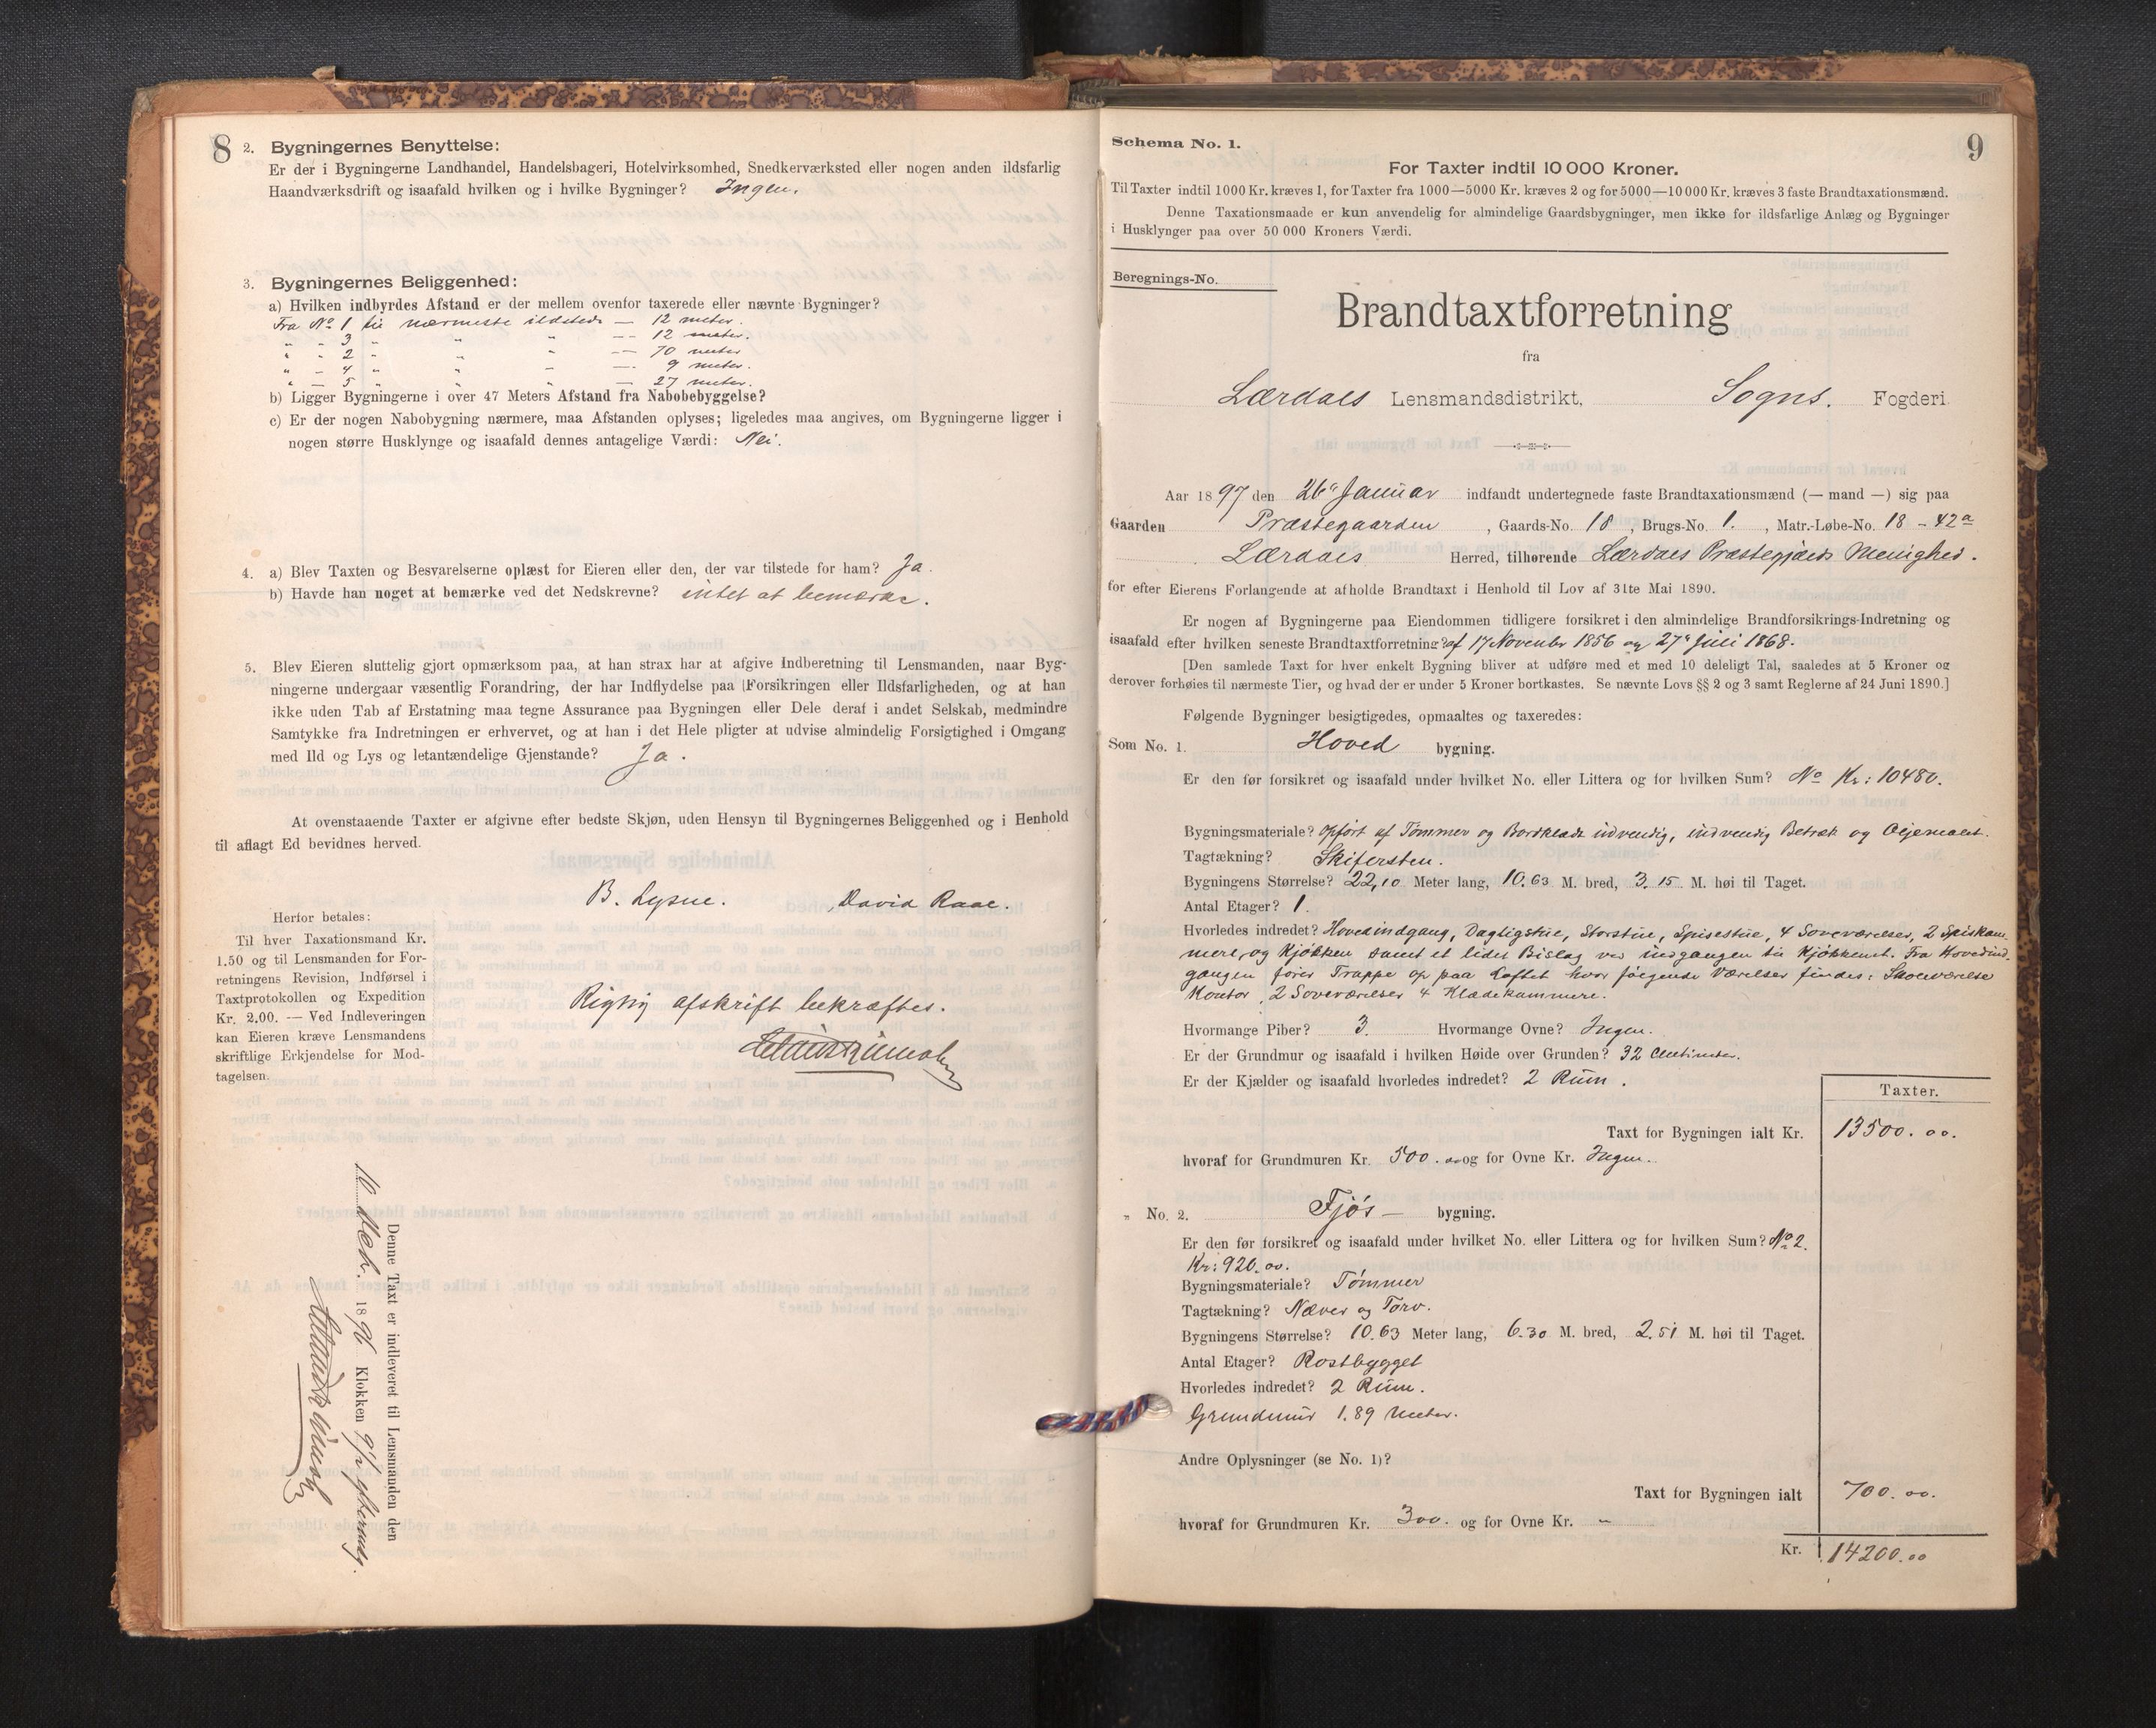 8
2. Bygningernes Benyttelse:
Er der i Bygningerne Landhandel, Handelsbageri, Hotelvirksomhed, Snedkerværksted eller nogen anden ildsfarlig
Haandværksdrift og isaafald hvilken og i hvilke Bygninger? Ingen.
3. Bygningernes Beliggenhed:
a) Hvilken indbyrdes Afstand er der mellem ovenfor taxerede eller nævnte Bygninger?
Fra No 1 til nærmeste ildsted — 12 meter.
" " 3 " " " — 12 meter.
" " 2 " " " — 70 meter
" " 4 " " " — 9 meter.
" " 5 " " " — 27 meter.
b) Ligger Bygningerne i over 47 Meters Afstand fra Nabobebyggelse?
c) Er der nogen Nabobygning nærmere, maa Afstanden oplyses; ligeledes maa angives, om Bygningerne ligger i
nogen større Husklynge og isaafald dennes antagelige Værdi: Nei.
4. a) Blev Taxten og Besvarelserne oplæst for Eieren eller den, der var tilstede for ham? Ja.
b) Havde han noget at bemærke ved det Nedskrevne? intet at bemærke.
5. Blev Eieren sluttelig gjort opmærksom paa, at han strax har at afgive Indberetning til Lensmanden, naar Byg-
ningerne undergaar væsentlig Forandring, der har Indflydelse paa Forsikringen eller Ildsfarligheden, og at han
ikke uden Tab af Erstatning maa tegne Assurance paa Bygningen eller Dele deraf i andet Selskab, medmindre
Samtykke fra Indretningen er erhvervet, og at han i det Hele pligter at udvise almindelig Forsigtighed i Omgang
med Ild og Lys og letantændelige Gjenstande? Ja.
At ovenstaaende Taxter er afgivne efter bedste Skjøn, uden Hensyn til Bygningernes Beliggenhed og i Henhold
til aflagt Ed bevidnes herved.
B. Lysne. David Raae.
Herfor betales:
Til hver Taxationsmand Kr.
1.50 og til Lensmanden for For-
retningens Revision, Indførsel i
Taxtprotokollen og Expedition
Kr. 2.00. — Ved Indleveringen
kan Eieren kræve Lensmandens
skriftlige Erkjendelse for Mod-
tagelsen.
Rigtig afskrift bekræftes.
Denne Taxt er indleveret til Lensmanden den
10 Dec. 1896 Klokken 9 1/2 eftermdg.
Schema No. 1.
9
For Taxter indtil 10 000 Kroner.
Til Taxter indtil 1000 Kr. kræves 1, for Taxter fra 1000—5000 Kr. kræves 2 og for 5000—10 000 Kr. kræves 3 faste Brandtaxationsmænd.
Denne Taxationsmaade er kun anvendelig for almindelige Gaardsbygninger, men ikke for ildsfarlige Anlæg og Bygninger
i Husklynger paa over 50 000 Kroners Værdi.
Beregnings-No.
Brandtaxtforretning
fra
Lærdals Lensmandsdistrikt, Sogns. Fogderi
Aar 1897 den 26de Januar indfandt undertegnede faste Brandtaxationsmænd (— mand —) sig paa
Gaarden Præstegaarden, Gaards-No. 18, Brugs-No. 1., Matr.-Løbe-No. 18 - 42a
Lærdals Herred, tilhørende Lærdals Præstegjælds Menighed.
for efter Eierens Forlangende at afholde Brandtaxt i Henhold til Lov af 31te Mai 1890.
Er nogen af Bygningerne paa Eiendommen tidligere forsikret i den almindelige Brandforsikrings-Indretning og
isaafald efter hvilken seneste Brandtaxtforretning? af 17 November 1856 og 27de Juli 1868.
[Den samlede Taxt for hver enkelt Bygning bliver at udføre med et med 10 deleligt Tal, saaledes at 5 Kroner og
derover forhøies til nærmeste Tier, og hvad der er under 5 Kroner bortkastes. Se nævnte Lovs §§ 2 og 3 samt Reglerne af 24 Juni 1890.]
Følgende Bygninger besigtigedes, opmaaltes og taxeredes:
Som No. 1. Hoved bygning.
Er den før forsikret og isaafald under hvilket No. eller Littera og for hvilken Sum? No Kr: 10480.
Bygningsmateriale? opført af Tømmer og Bordklædt udvendig, indvendig Betræk og Oljemalet.
Tagtækning? Skifersten.
Bygningens Størrelse? 22,10 Meter lang, 10.63 M. bred, 3.15 M. høi til Taget.
Antal Etager? 1.
Hvorledes indredet? Hovedindgang, Dagligstue, Storstue, Spisestue, 4 Soveværelser, 2 Spiskam-
mere, og Kjøkken samt et lidet Bislag ved indgangen til Kjøkkenet. Fra Hovedind-
gangen fører Trappe op paa Loftet hvor følgende Værelser findes: Skoleværelse
Kontor, 2 Soveværelser 4 Klædekammere.
Hvormange Piber? 3. Hvormange Ovne? Ingen.
Er der Grundmur og isaafald i hvilken Høide over Grunden? 32 Centimeter.
Er der Kjælder og isaafald hvorledes indredet? 2 Rum.
Taxter.
Taxt for Bygningen ialt Kr. 13500.00.
hvoraf for Grundmuren Kr. 500.00 og for Ovne Kr. Ingen.
" No. 2. Fjøs— bygning.
Er den før forsikret og isaafald under hvilket No. eller Littera og for hvilken Sum? No 2.
Kr: 920.00.
Bygningsmateriale? Tømmer
Tagtækning? Næver og Torv.
Bygningens Størrelse? 10.63 Meter lang, 6.30 M. bred, 2.51 M. høi til Taget.
Antal Etager? Rostbygget
Hvorledes indredet? 2 Rum.
Grundmur 1.89 Meter.
Andre Oplysninger (se No. 1)?
Taxt for Bygningen ialt 700.00.
hvoraf for Grundmuren Kr. 300. og for Ovne Kr. "
Kr. 14200.00